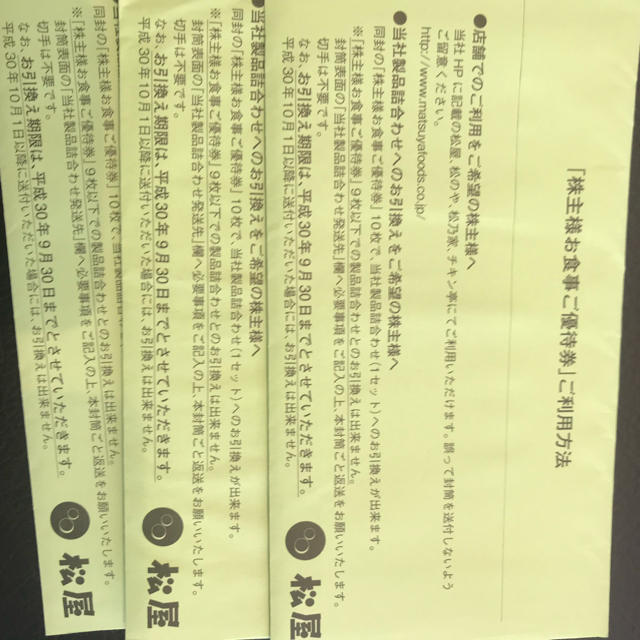 「株主様お食事ご優待券」ご利用方法
●店舗でのご利用をご希望の株主様へ
当社HPに記載の松屋、松のや、松乃家、チキン亭にてご利用いただけます。誤って封筒を送付しないよう
ご留意ください。
http://www.matsuyafoods.co.jp/
●当社製品詰合わせへのお引換えをご希望の株主様へ
同封の「株主様お食事ご優待券」10枚で、当社製品詰合わせ(1セット)へのお引換えが出来ます。
※「株主様お食事ご優待券」9枚以下での製品詰合わせとのお引換えは出来ません。
封筒表面の「当社製品詰合わせ発送先」欄へ必要事項をご記入の上、本封筒ごと返送をお願いいたします。
切手は不要です。
なお、お引換え期限は、平成30年9月30日までとさせていただきます。
平成30年10月1日以降に送付いただいた場合には、お引換えは出来ません。
松屋
●当社製品詰合わせへのお引換えをご希望の株主様へ
同封の「株主様お食事ご優待券」10枚で、当社製品詰合わせ(1セット)へのお引換えが出来ます。
※「株主様お食事ご優待券」9枚以下での製品詰合わせとのお引換えは出来ません。
封筒表面の「当社製品詰合わせ発送先」欄へ必要事項をご記入の上、本封筒ごと返送をお願いいたします。
切手は不要です。
なお、お引換え期限は、平成30年9月30日までとさせていただきます。
平成30年10月1日以降に送付いただいた場合には、お引換えは出来ません。
松屋
同封の「株主様お食事ご優待券」10枚で、当社製品詰合わ
※「株主様お食事ご優待券」9枚以下での製品詰合わせとのお引換えは出来ません。
封筒表面の「当社製品詰合わせ発送先」欄へ必要事項をご記入の上、本封筒ごと返送をお願いいたします。
切手は不要です。
なお、お引換え期限は、平成30年9月30日までとさせていただきます。
平成30年10月1日以降に送付いただいた場合には、お引換えは出来ません。
松屋